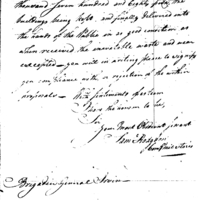 thousand seven hundred and eighty
buildings being kept and finally delivered into
the hands of the in as good condition as
when received the unavoidable waste and wear
excepted - you will in writing please to signify
your compliance with or rejection of the within
proposals - With sentiments of esteem
I have the honour to be,
Sir
Your Most Obedient Servant
Sam Hodgdon
Brigadier General Irvine